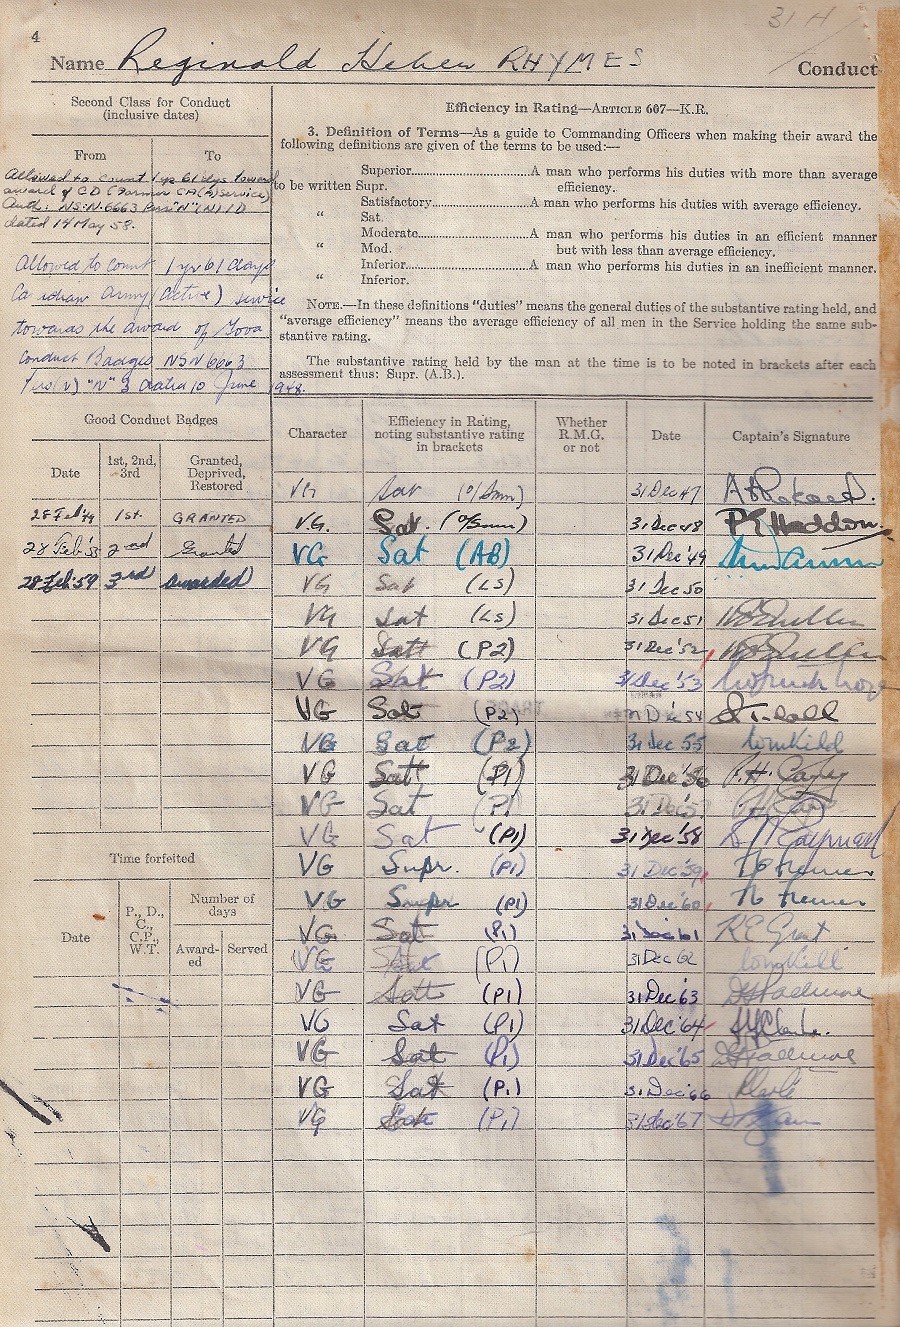 31 H
4
Name Reginald Heber RHYMES Conduct
Second Class for Conduct
(inclusive dates)
From To
Allowed to count 1 yr 61 dys toward
award of CD (Former CA(A) service)
Auth: NS:N.6663 "N"
dated 19 May 58.
Allowed to count 1 yr 61 days
Canadian Army (active) service
towards the award of Good
Conduct Badges NSN 6663
"N" 3 dated 10 June 1948.
Efficiency in Rating—ARTICLE 607—K.R.
3. Definition of Terms—As a guide to Commanding Officers when making their award the
following definitions are given of the terms to be used:—
Superior A man who performs his duties with more than average
to be written Supr. efficiency.
Satisfactory A man who performs his duties with average efficiency.
" Sat.
Moderate A man who performs his duties in an efficient manner
" Mod. but with less than average efficiency.
Inferior A man who performs his duties in an inefficient manner.
" Inferior.
NOTE.—In these definitions "duties" means the general duties of the substantive rating held, and
"average efficiency" means the average efficiency of all men in the Service holding the same sub-
stantive rating.
The substantive rating held by the man at the time is to be noted in brackets after each
assessment thus: Supr. (A.B.).
Good Conduct Badges
Date 1st, 2nd, 3rd Granted, Deprived, Restored
28 Feb '49 1st. GRANTED
28 Feb '53 2nd Granted
28 Feb '59 3rd Awarded
Time forfeited
Date P., D., C., C.P., W.T. Number of days
Award-ed Served
Character Efficiency in Rating, noting substantive rating in brackets Whether R.M.G. or not Date Captain's Signature
VG Sat (O/Smn) 31 Dec 47
VG. Sat. (O/Smn) 31 Dec 48 Haddon.
VG Sat (AB) 31 Dec '49
VG Sat (LS) 31 Dec 50
VG Sat (LS) 31 Dec 51
VG Satt (P2) 31 Dec '52
VG Sat (P2) 31 Dec '53
VG Sat (P2) 31 Dec 54
VG Sat (P2) 31 Dec 55
VG Satt (P1) 31 Dec '56
VG Sat (P1 31 Dec '57
VG Sat (P1) 31 Dec '58
VG Supr. (P1) 31 Dec '59
VG Supr (P1) 31 Dec '60
VG Sat (P1) 31 Dec '61 R E Grant
VG Sat (P1) 31 Dec 62
VG Satt (P1) 31 Dec '63
VG Sat (P1) 31 Dec '64
VG Sat (P1) 31 Dec '65
VG Sat (P1) 31 Dec '66
VG Sat (P1) 31 Dec '67